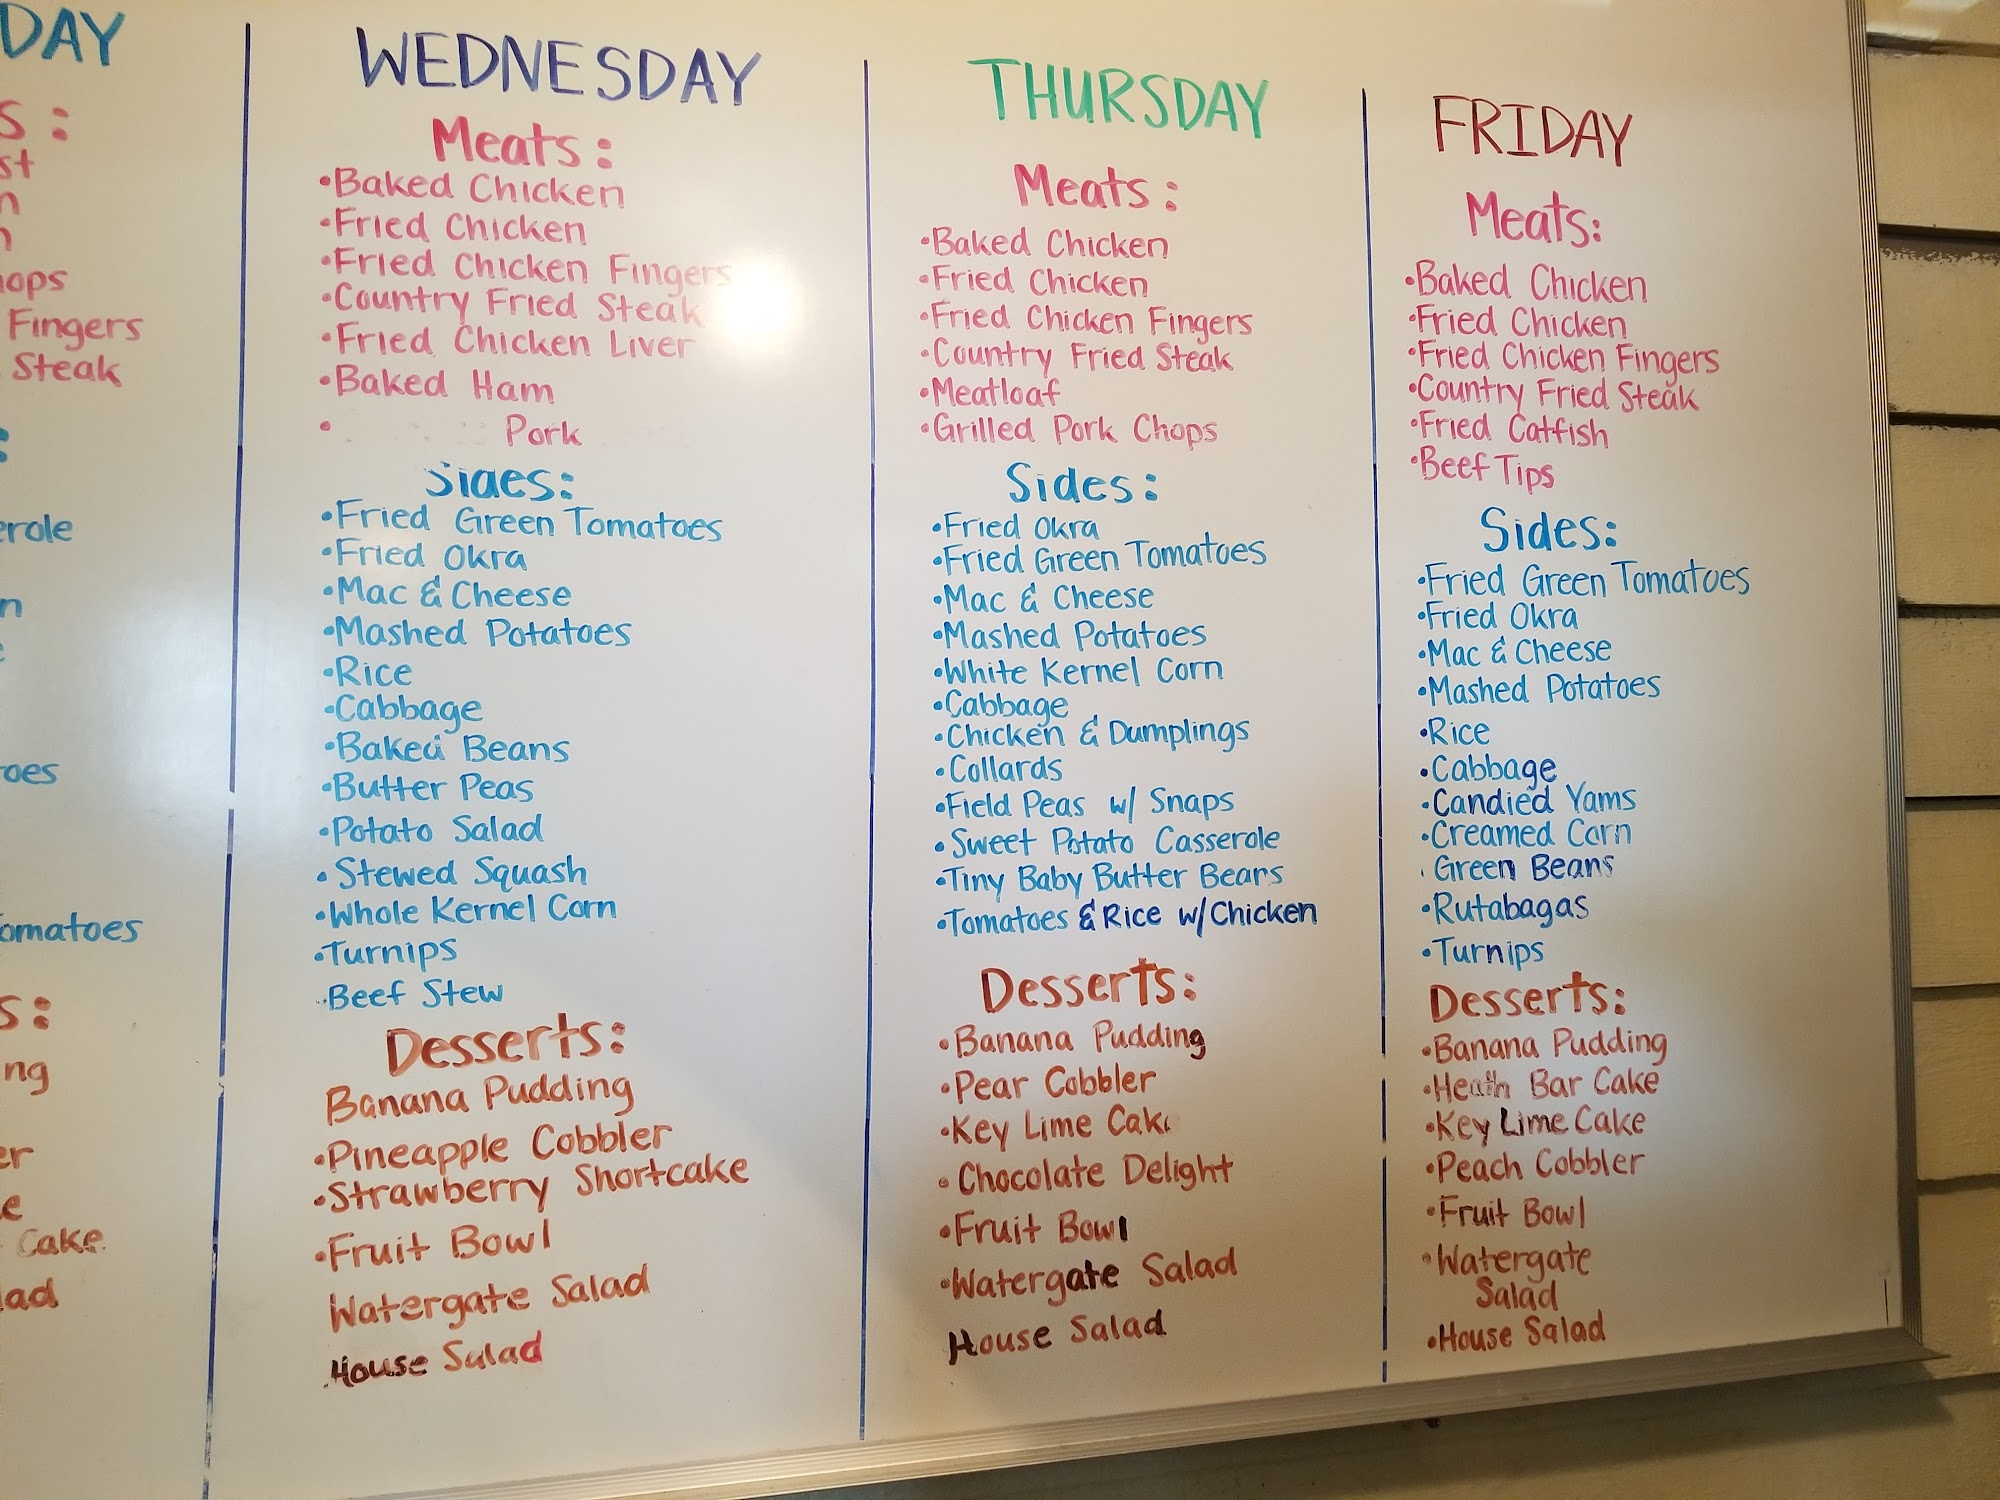 DAY
S:
st
n
n
hops
Fingers
Steak
:
erole
n
e
oes
omatoes
S:
ng
er
e
Cake
lad
WEDNESDAY
Meats:
•Baked Chicken
•Fried Chicken
•Fried Chicken Fingers
•Country Fried Steak
•Fried Chicken Liver
•Baked Ham
• Pork
Sides:
•Fried Green Tomatoes
•Fried Okra
•Mac & Cheese
•Mashed Potatoes
•Rice
•Cabbage
•Baked Beans
•Butter Peas
•Potato Salad
•Stewed Squash
•Whole Kernel Corn
•Turnips
•Beef Stew
Desserts:
Banana Pudding
•Pineapple Cobbler
•Strawberry Shortcake
•Fruit Bowl
Watergate Salad
•House Salad
THURSDAY
Meats:
•Baked Chicken
•Fried Chicken
•Fried Chicken Fingers
•Country Fried Steak
•Meatloaf
•Grilled Pork Chops
Sides:
•Fried Okra
•Fried Green Tomatoes
•Mac & Cheese
•Mashed Potatoes
•White Kernel Corn
•Cabbage
•Chicken & Dumplings
•Collards
•Field Peas w/ Snaps
•Sweet Potato Casserole
•Tiny Baby Butter Bears
•Tomatoes & Rice w/ Chicken
Desserts:
•Banana Pudding
•Pear Cobbler
•Key Lime Cake
•Chocolate Delight
•Fruit Bowl
•Watergate Salad
House Salad
FRIDAY
Meats:
•Baked Chicken
•Fried Chicken
•Fried Chicken Fingers
•Country Fried Steak
•Fried Catfish
•Beef Tips
Sides:
•Fried Green Tomatoes
•Fried Okra
•Mac & Cheese
•Mashed Potatoes
•Rice
•Cabbage
•Candied Yams
•Creamed Corn
•Green Beans
•Rutabagas
•Turnips
Desserts:
•Banana Pudding
•Heath Bar Cake
•Key Lime Cake
•Peach Cobbler
•Fruit Bowl
•Watergate
Salad
•House Salad